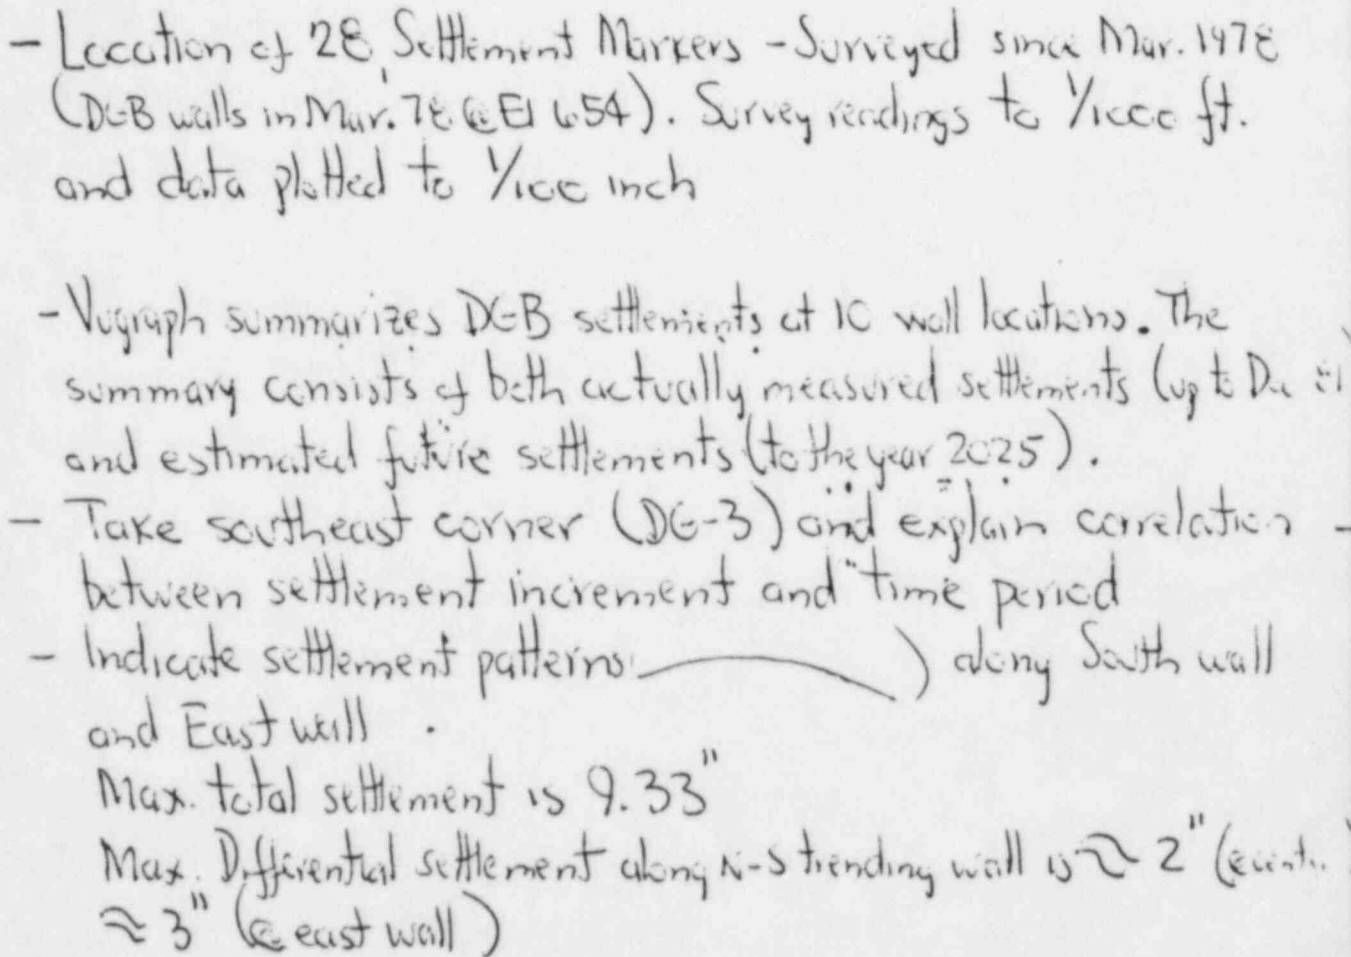 - Location of 28 Settlement Markers - Surveyed since Mar. 1978
(DGB walls in Mar. 78 @ El 654). Survey readings to 1/1000 ft.
and data plotted to 1/100 inch
- Vugraph summarizes DGB settlements at 10 wall locations. The
summary consists of both actually measured settlements (up to
and estimated future settlements (to the year 2025).
- Take southeast corner (DG-3) and explain correlation -
between settlement increment and time period
- Indicate settlement patterns ) along South wall
and East wall.
Max. total settlement is 9.33"
Max. Differential settlement along N-S trending wall is ≈ 2" (@
≈ 3" (@ east wall)